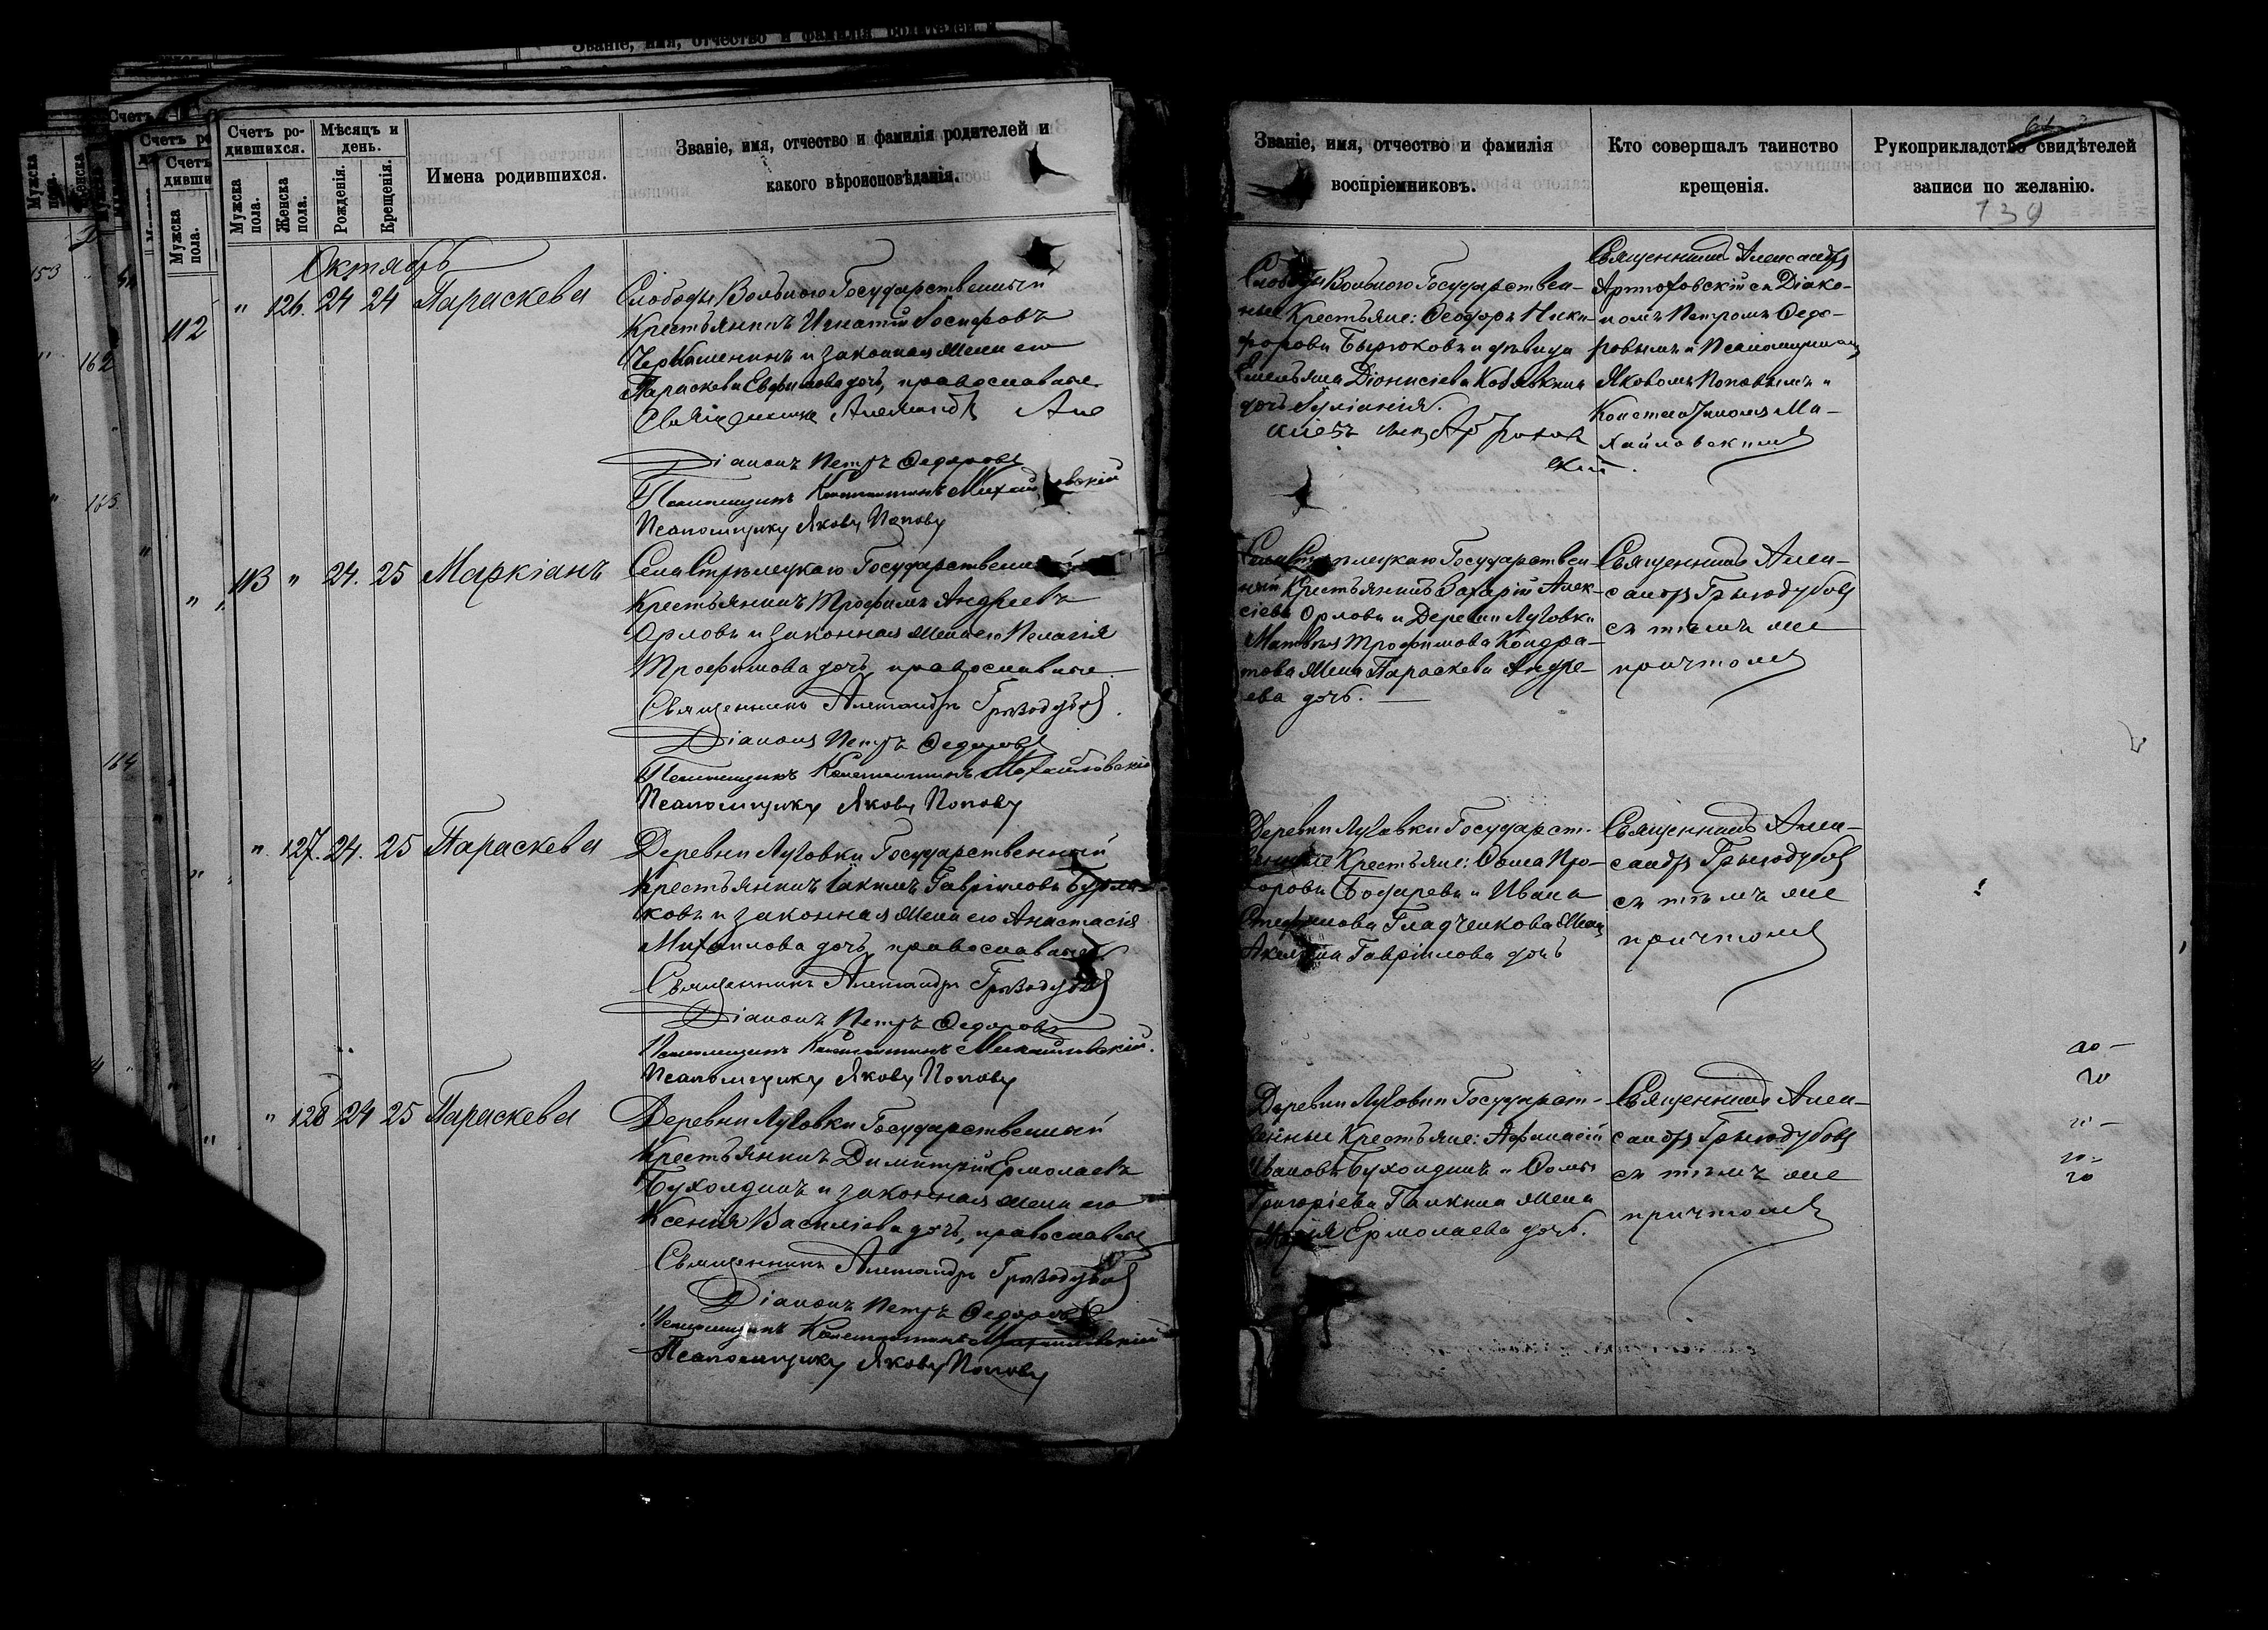 Званіе, имя, отчество и фамилія родителей и
Счетъ ро-
дившихся.
Мѣсяцъ и
день.
Имена родившихся.
Званіе, имя, отчество и фамилія родителей и
какого вѣроисповѣданія.
Мужска
пола.
Женска
пола.
Рожденія.
Крещенія.
Октябрь
" 126. 24 24 Параскева
Слободы Вольного Государственный
Крестьянинъ Игнатій Іосифовъ
и законная жена его
Параскева Евфимова дочь, православные
Священникъ Александръ
Діаконъ Петръ Федоровъ
Псаломщикъ Константинъ Михайловскій
Псаломщикъ Яковъ Поповъ
113 " 24. 25 Маркіанъ
Села Стрѣлецкаго Государственный
Крестьянинъ Трофимъ Андреевъ
Орловъ и законная жена его Пелагія
Трофимова дочь, православные.
Священникъ Александръ Грѣзодубовъ.
Діаконъ Петръ Федоровъ
Псаломщикъ Константинъ Михайловскій
Псаломщикъ Яковъ Поповъ
" 127. 24. 25 Параскева
Деревни Луговки Государственный
Крестьянинъ Іакимъ Гавріиловъ
ковъ и законная жена его Анастасія
Михаилова дочь, православные.
Священникъ Александръ Грѣзодубовъ
Діаконъ Петръ Федоровъ
Псаломщикъ Константинъ Михайловскій.
Псаломщикъ Яковъ Поповъ
" 128 24 25 Параскева
Деревни Луговки Государственный
Крестьянинъ Димитрій Ермолаевъ
Бухолдинъ и законная жена его
Ксенія Василіева дочь, православные
Священникъ Александръ Грѣзодубовъ
Діаконъ Петръ Федоровъ
Псаломщикъ Константинъ Михайловскій
Псаломщикъ Яковъ Поповъ
112
153
162
163
164
Званіе, имя, отчество и фамилія
воспріемниковъ.
Кто совершалъ таинство
крещенія.
Рукоприкладство свидѣтелей
записи по желанію.
139
Слободы Вольного Государствен-
ные Крестьяне: Феодоръ Ники-
форовъ Бырюковъ и дѣвица
Емельяна Діонисіева
дочь Іуліанія.
Священникъ Александръ
Артюховскій съ Діако-
номъ Петромъ Федо-
ровымъ и Псаломщиками
Яковомъ Поповымъ и
Константиномъ Ми-
хайловскимъ
Села Стрѣлецкаго Государствен-
ный Крестьянинъ Захарій Алек-
сіевъ Орловъ и Деревни Луговки
Матвѣя Трофимова Кондра-
това жена Параскева Андре-
ева дочь.
Священникъ Алек-
сандръ Грызодубовъ
съ тѣмъ же
причтомъ
Деревни Луговки Государст-
венные Крестьяне: Фома Про-
хоровъ Бочаревъ и Ивана
Стефанова Гладченкова жена
Акилина Гавріилова дочь
Священникъ Алек-
сандръ Грызодубовъ
съ тѣмъ же
причтомъ
Деревни Луговки Государст-
венные Крестьяне: Афанасій
Ивановъ Бухолдинъ и Фомы
Григоріева Галкина жена
Марія Ермолаева дочь.
Священникъ Алек-
сандръ Грызодубовъ
съ тѣмъ же
причтомъ
20
20